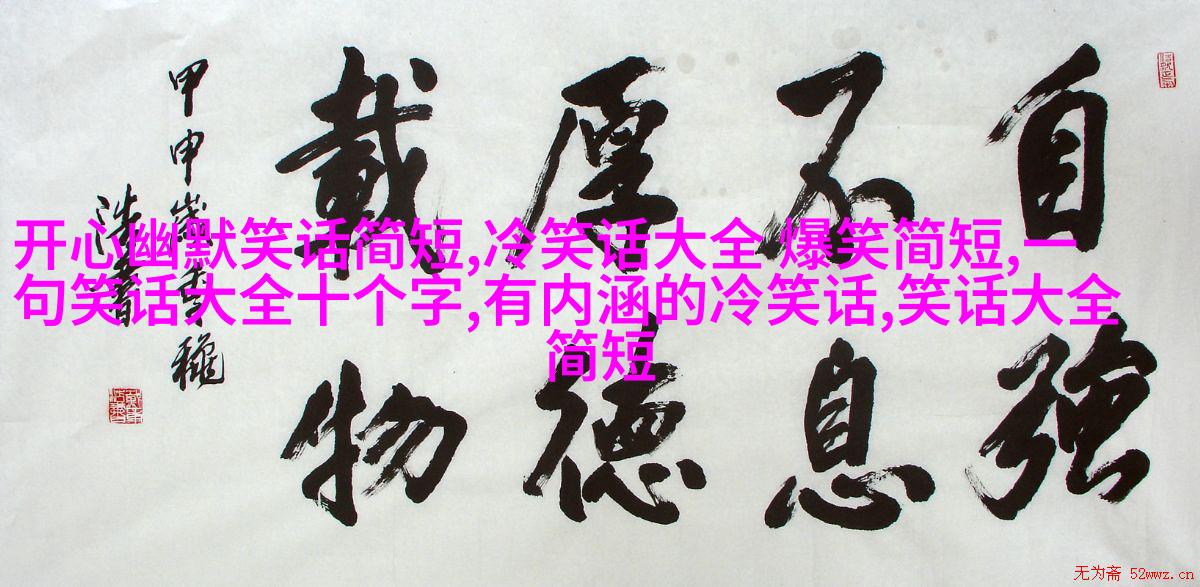 自强
不息
厚德
载物
甲申岁秀龝
浩书
开心幽默笑话简短,冷笑话大全 爆笑简短,一
句笑话大全十个字,有内涵的冷笑话,笑话大全
简短
无为斋 52wwz.cn